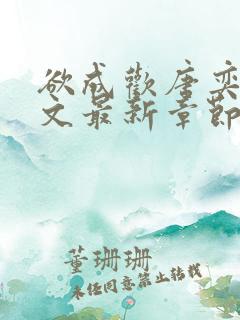 欲成欢唐奕
文最新章节
董珊珊
未经同意禁止转载